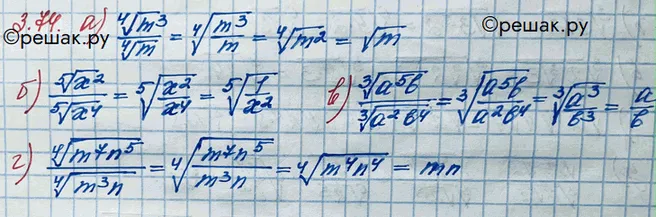 3.74. а) ⁴√m³ / ⁴√m = ⁴√(m³/m) = ⁴√m² = √m
©решак.ру ©решак.ру
б) ⁵√x² / ⁵√x⁴ = ⁵√(x²/x⁴) = ⁵√(1/x²) в) ³√(a⁵b) / ³√(a²b⁴) = ³√(a⁵b/a²b⁴) = ³√(a³/b³) = a/b
г) ⁴√(m⁷n⁵) / ⁴√(m³n) = ⁴√(m⁷n⁵/m³n) = ⁴√(m⁴n⁴) = mn